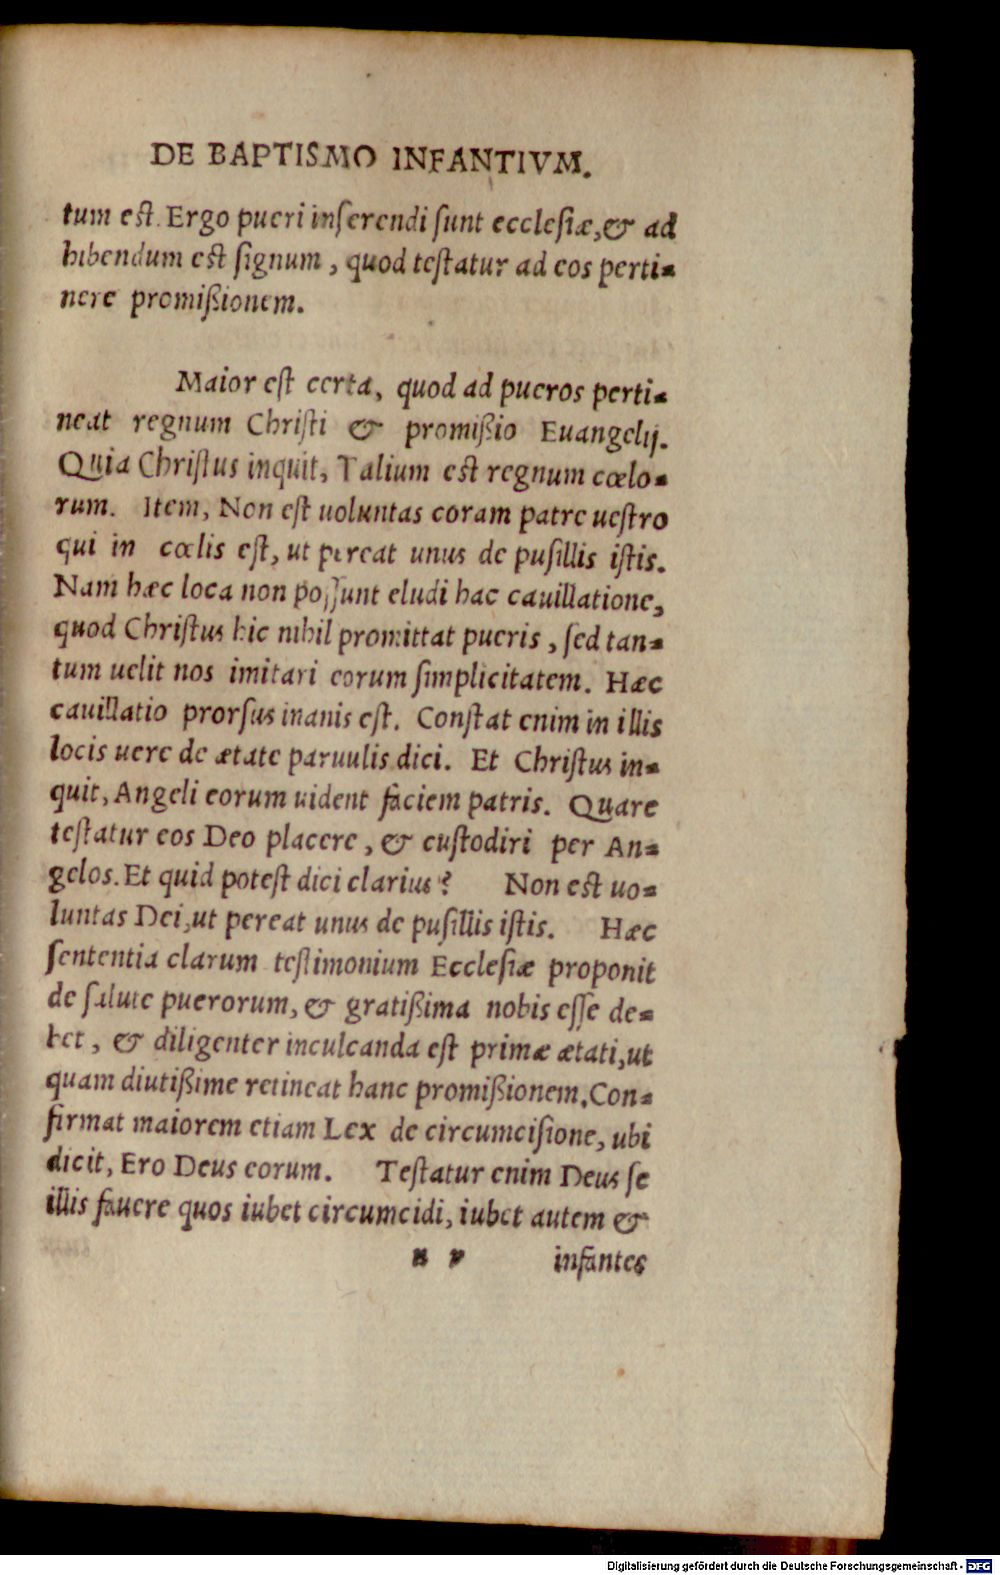 DE BAPTISMO INFANTIVM.
tum est. Ergo pueri inſerendi ſunt eccleſiæ, & ad
hibendum est ſignum, quod teſtatur ad eos perti-
nere promißionem.
Maior eſt certa, quod ad pueros perti-
neat regnum Chriſti & promißio Euangelij.
Quia Chriſtus inquit, Talium est regnum cœlo-
rum. Item, Non eſt uoluntas coram patre ueſtro
qui in cœlis eſt, ut pereat unus de puſillis iſtis.
Nam hæc loca non poſſunt eludi hac cauillatione,
quod Chriſtus hic nihil promittat pueris, ſed tan-
tum uelit nos imitari eorum ſimplicitatem. Hæc
cauillatio prorſus inanis eſt. Conſtat enim in illis
locis uere de ætate paruulis dici. Et Chriſtus in-
quit, Angeli eorum uident faciem patris. Quare
teſtatur eos Deo placere, & cuſtodiri per An-
gelos. Et quid poteſt dici clarius? Non est uo-
luntas Dei, ut pereat unus de puſillis iſtis. Hæc
ſententia clarum teſtimonium Eccleſiæ proponit
de ſalute puerorum, & gratißima nobis eſſe de-
bet, & diligenter inculcanda est primæ ætati, ut
quam diutißime retineat hanc promißionem. Con-
firmat maiorem etiam Lex de circumciſione, ubi
dicit, Ero Deus eorum. Teſtatur enim Deus ſe
illis fauere quos iubet circumcidi, iubet autem &
n v infantes
Digitalisierung gefördert durch die Deutsche Forschungsgemeinschaft - DFG